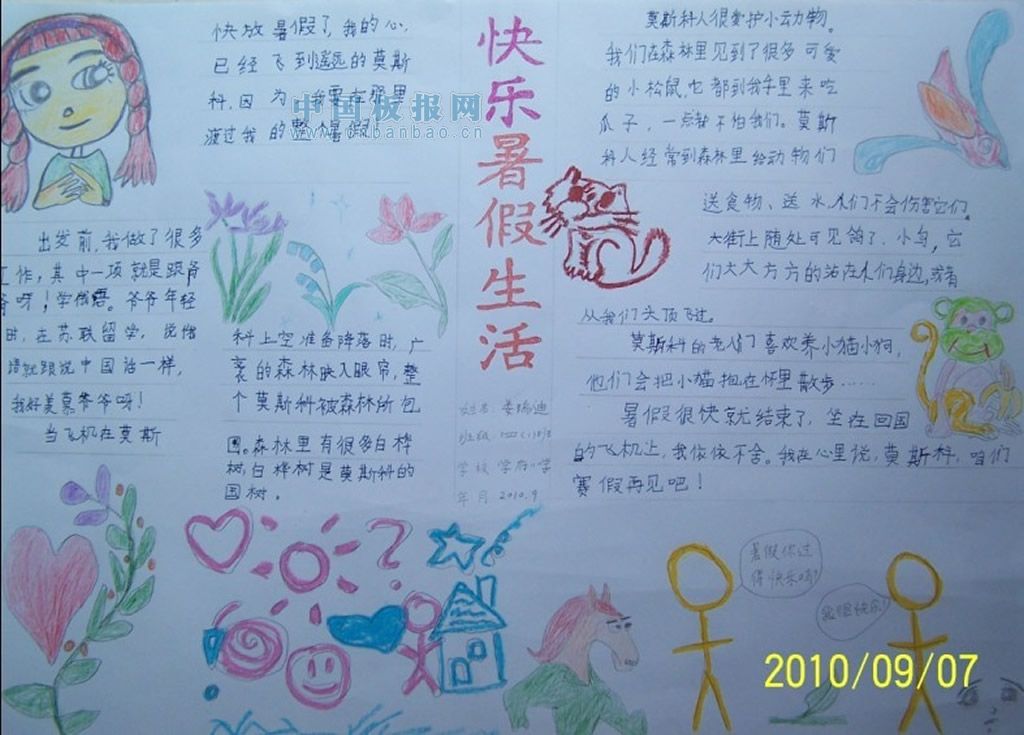 快乐暑假生活
快放暑假了,我的心,
已经飞到遥远的莫斯
科,因为,我要在那里
渡过我的整个暑假!
中国板报网
www.cnbanbao.cn
出发前,我做了很多
工作,其中一项就是跟爷
爷呀!学俄语。爷爷年轻
时,在苏联留学,说俄
语就跟说中国话一样,
我好羡慕爷爷呀!
当飞机在莫斯
科上空准备降落时,广
袤的森林映入眼帘,整
个莫斯科被森林所包
围。森林里有很多白桦
树,白桦树是莫斯科的
国树。
姓名:
班级:
学校 学府小学
年月 2010.9
莫斯科人很爱护小动物。
我们在森林里见到了很多可爱
的小松鼠,它都到我手里来吃
瓜子,一点都不怕我们。莫斯
科人经常到森林里给动物们
送食物、送水,人们不会伤害它们。
大街上随处可见鸽子、小鸟,它
们大大方方的站在人们身边,或者
从我们头顶飞过。
莫斯科的老人们喜欢养小猫小狗,
他们会把小猫抱在怀里散步……
暑假很快就结束了,坐在回国
的飞机上,我依依不舍。我在心里说,莫斯科,咱们
寒假再见吧!
暑假你过
得快乐吗?
我很快乐!
2010/09/07